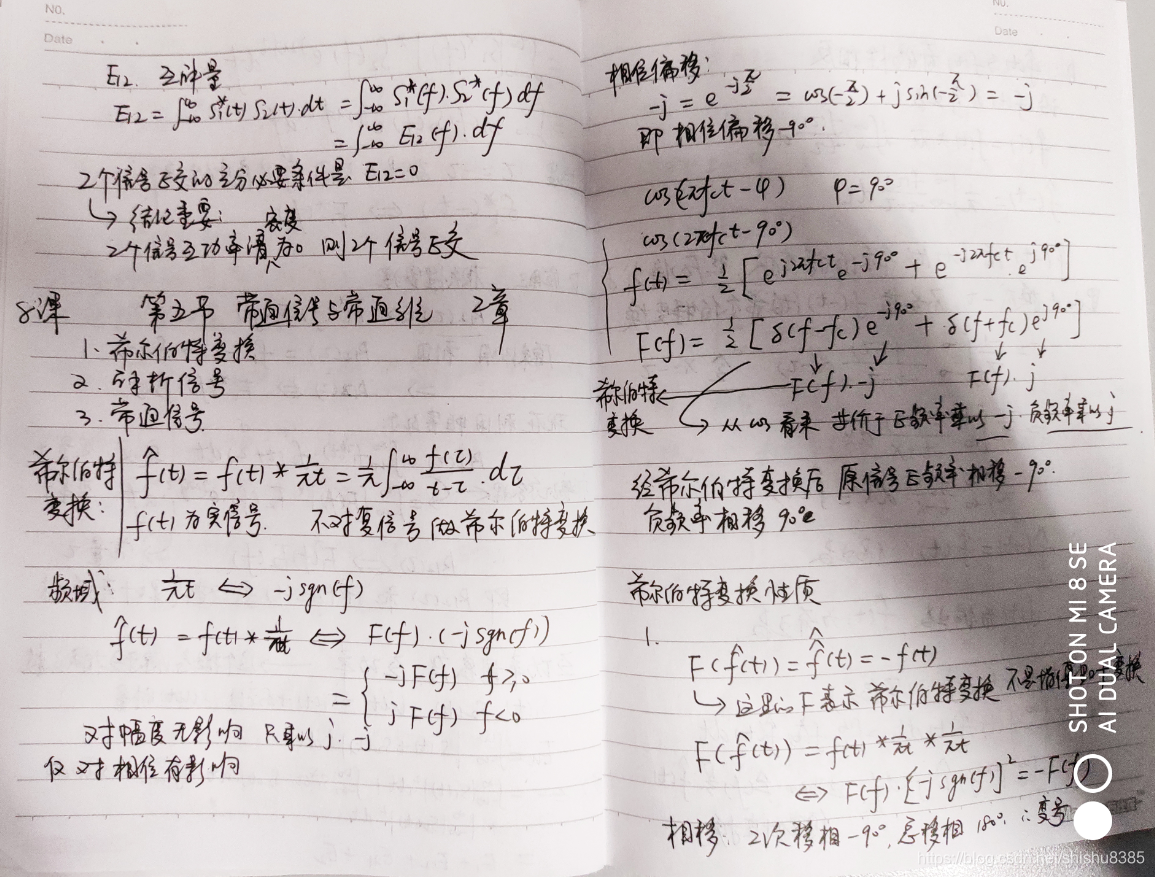 No.
Date
E₁₂ 互能量
E₁₂ = ∫_{-∞}^{∞} S₁*(t) S₂(t)·dt = ∫_{-∞}^{∞} S₁*(f)·S₂*(f) df
= ∫_{-∞}^{∞} E₁₂(f)·df
2个信号正交的充分必要条件是 E₁₂=0
↳ 结论重要:
密度
2个信号互功率谱为0 则2个信号正交
8课 第五节 带通信号与带通系统 2章
1. 希尔伯特变换
2. 解析信号
3. 带通信号
希尔伯特变换:
f̂(t) = f(t) * 1/πt = 1/π ∫_{-∞}^{∞} f(τ)/(t-τ)·dτ
f(t) 为实信号. 不对复信号做希尔伯特变换
频域: 1/πt ⇔ -j sgn(f)
f̂(t) = f(t) * 1/πt ⇔ F(f)·(-j sgn(f))
= { -jF(f) f≥0
jF(f) f<0
对幅度无影响 只乘以 j. -j
仅对相位有影响
No.
Date
相位偏移:
-j = e^{-jπ/2} = cos(-π/2) + j sin(-π/2) = -j
即 相位偏移-90°.
cos(2πfct - φ) φ = 90°
cos(2πfct - 90°)
f(t) = 1/2 [e^{j2πfct} e^{-j90°} + e^{-j2πfct}·e^{j90°}]
F(f) = 1/2 [δ(f-fc)e^{-j90°} + δ(f+fc)e^{j90°}]
希尔伯特变换 ← F(f)·-j F(f)·j
↳ 从cos看来 等价于正频率乘以 -j. 负频率乘以 j
经希尔伯特变换后 原信号正频率相移 -90°.
负频率相移 90°
希尔伯特变换性质
1.
F(f̂(t)) = f̂̂(t) = -f(t)
↳ 这里的F表示 希尔伯特变换 不是傅里叶变换
F(f̂(t)) = f(t) * 1/πt * 1/πt
⇔ F(f)·[-j sgn(f)]² = -F(f)
相移: 2次移相 -90°, 总移相 180° ∴变号
SHOT ON MI 8 SE
AI DUAL CAMERA
https://blog.csdn.net/shishu8385